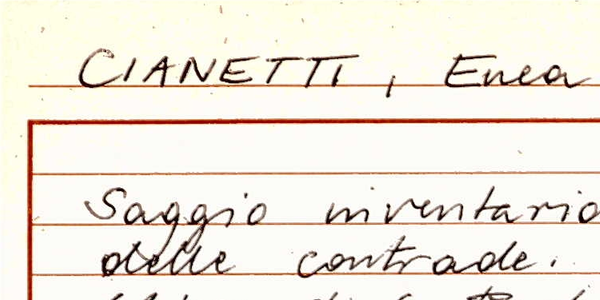 CIANETTI, Enea
Saggio inventario
delle contrade.